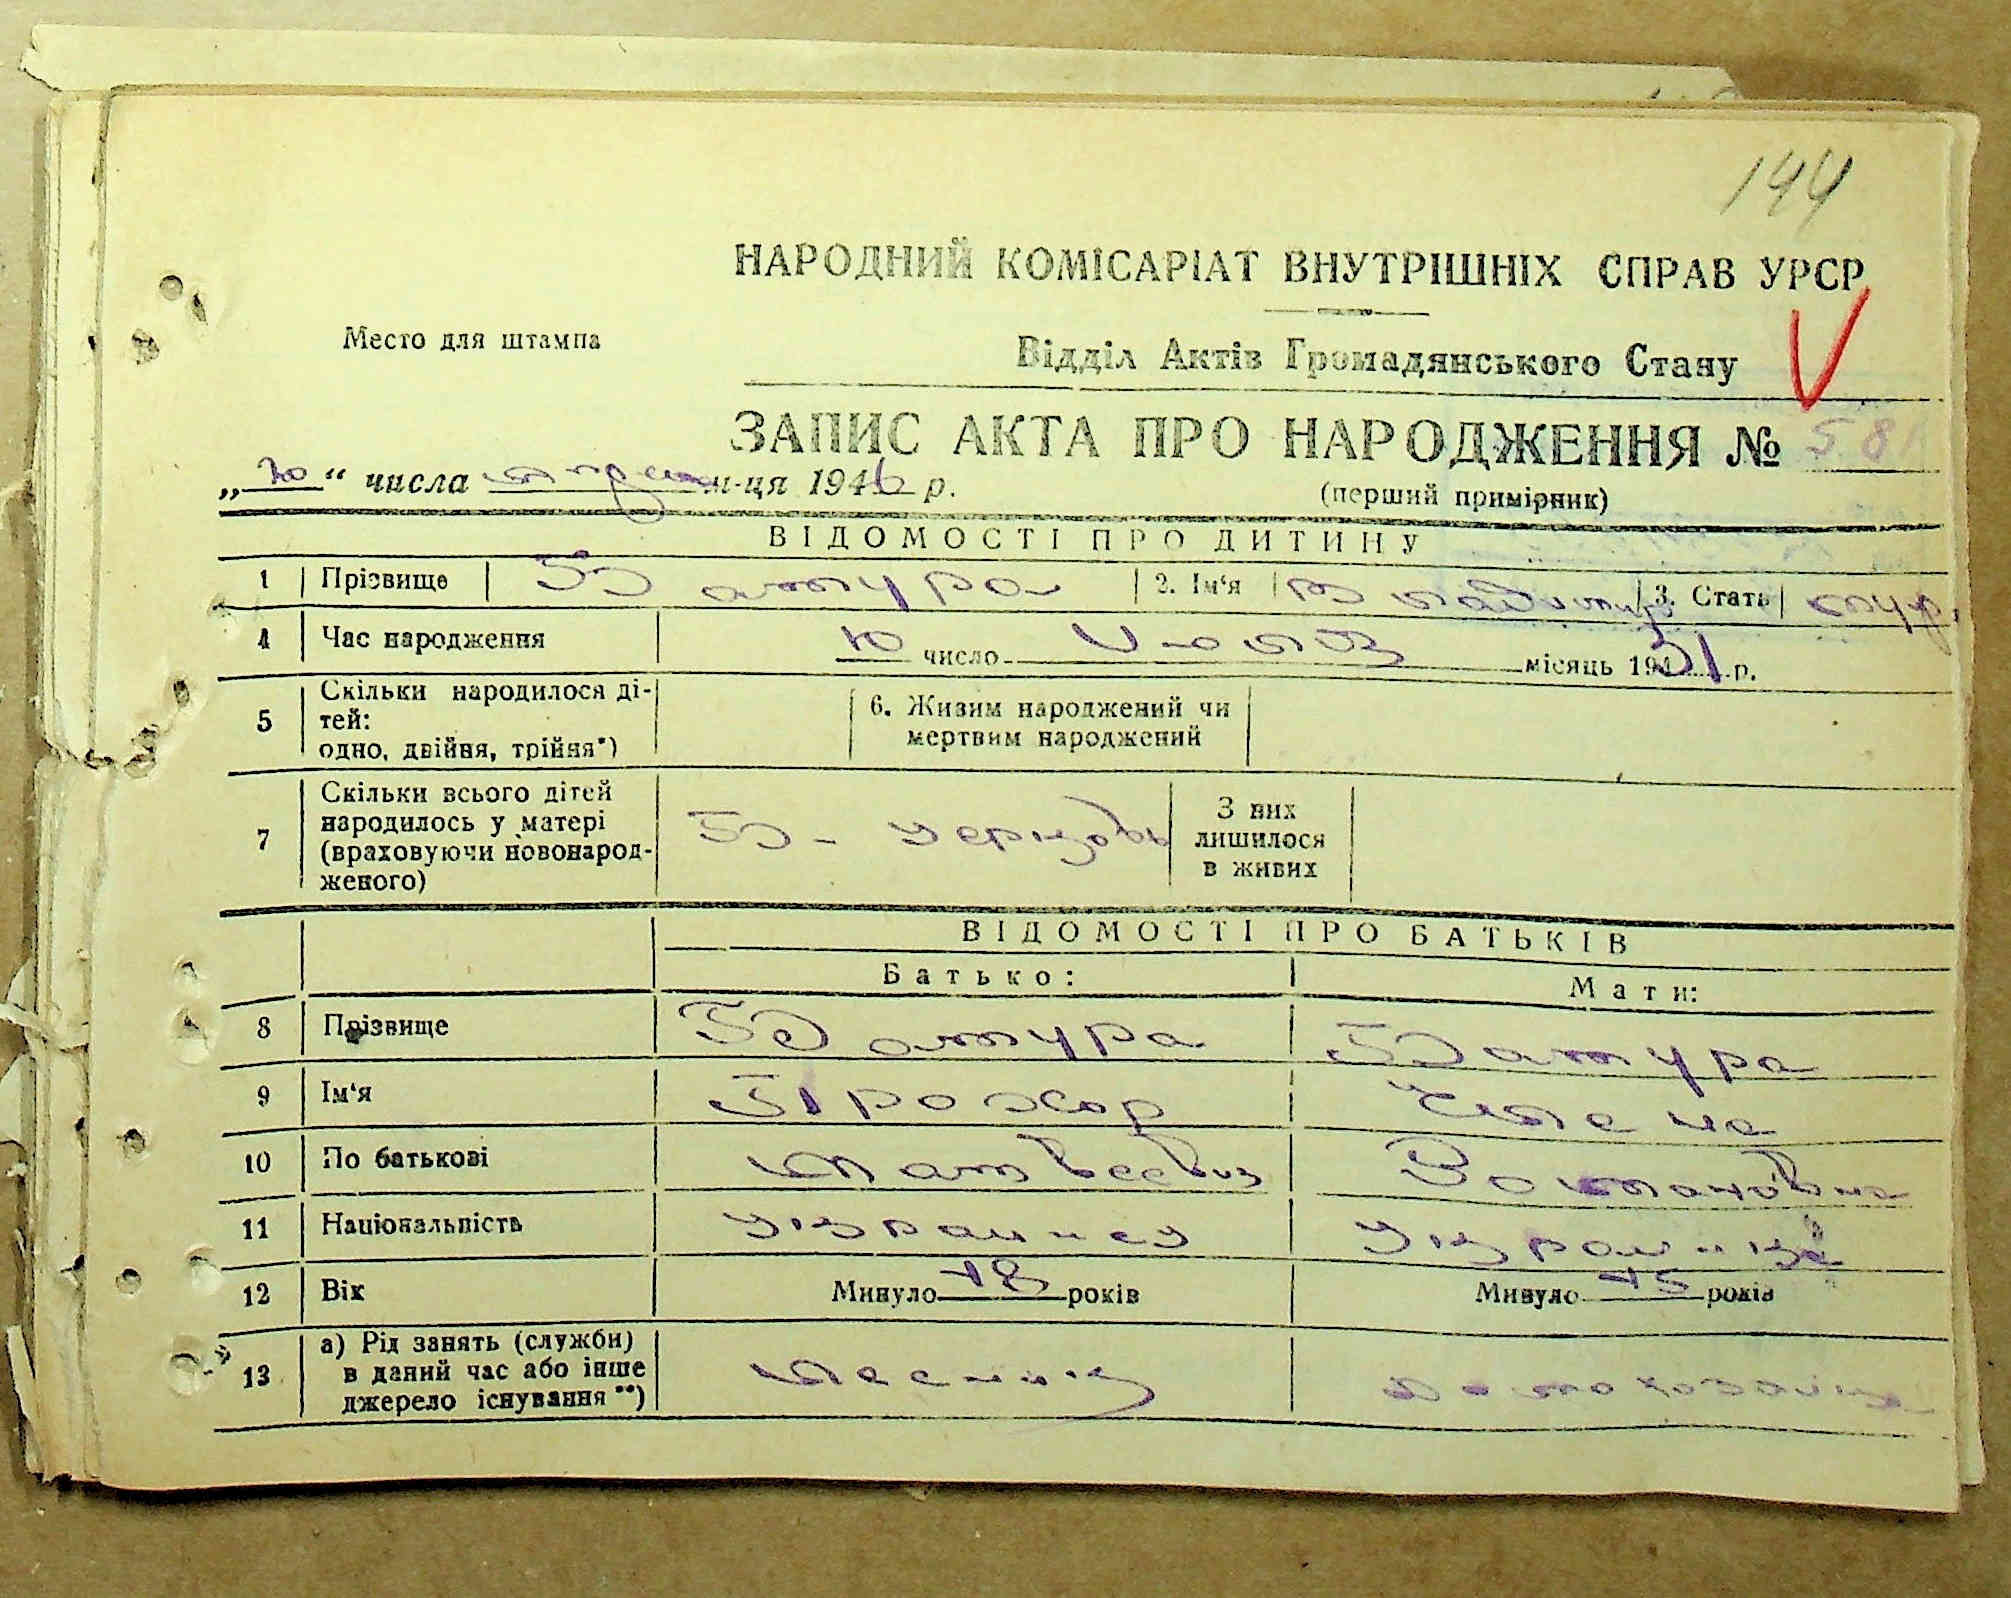 144
НАРОДНИЙ КОМІСАРІАТ ВНУТРІШНІХ СПРАВ УРСР
Место для штампа
Відділ Актів Громадянського Стану
ЗАПИС АКТА ПРО НАРОДЖЕННЯ № 58
„ “ числа м-ця 194 р.
(перший примірник)
ВІДОМОСТІ ПРО ДИТИНУ
1 Прізвище Батура 2. Ім‘я Владимир 3. Стать муж.
4 Час народження число місяць 1931 р.
5 Скільки народилося ді-
тей:
одно, двійня, трійня*)
6. Живим народжений чи
мертвим народжений
7 Скільки всього дітей
народилось у матері
(враховуючи новонарод-
женого)
З них
лишилося
в живих
ВІДОМОСТІ ПРО БАТЬКІВ
Батько: Мати:
8 Прізвище Батура Батура
9 Ім‘я Прохор Елена
10 По батькові Матвеевич
11 Національність украинец украинка
12 Вік Минуло 48 років Минуло 45 років
13 а) Рід занять (служби)
в даний час або інше
джерело існування **)
лесник домохозайка